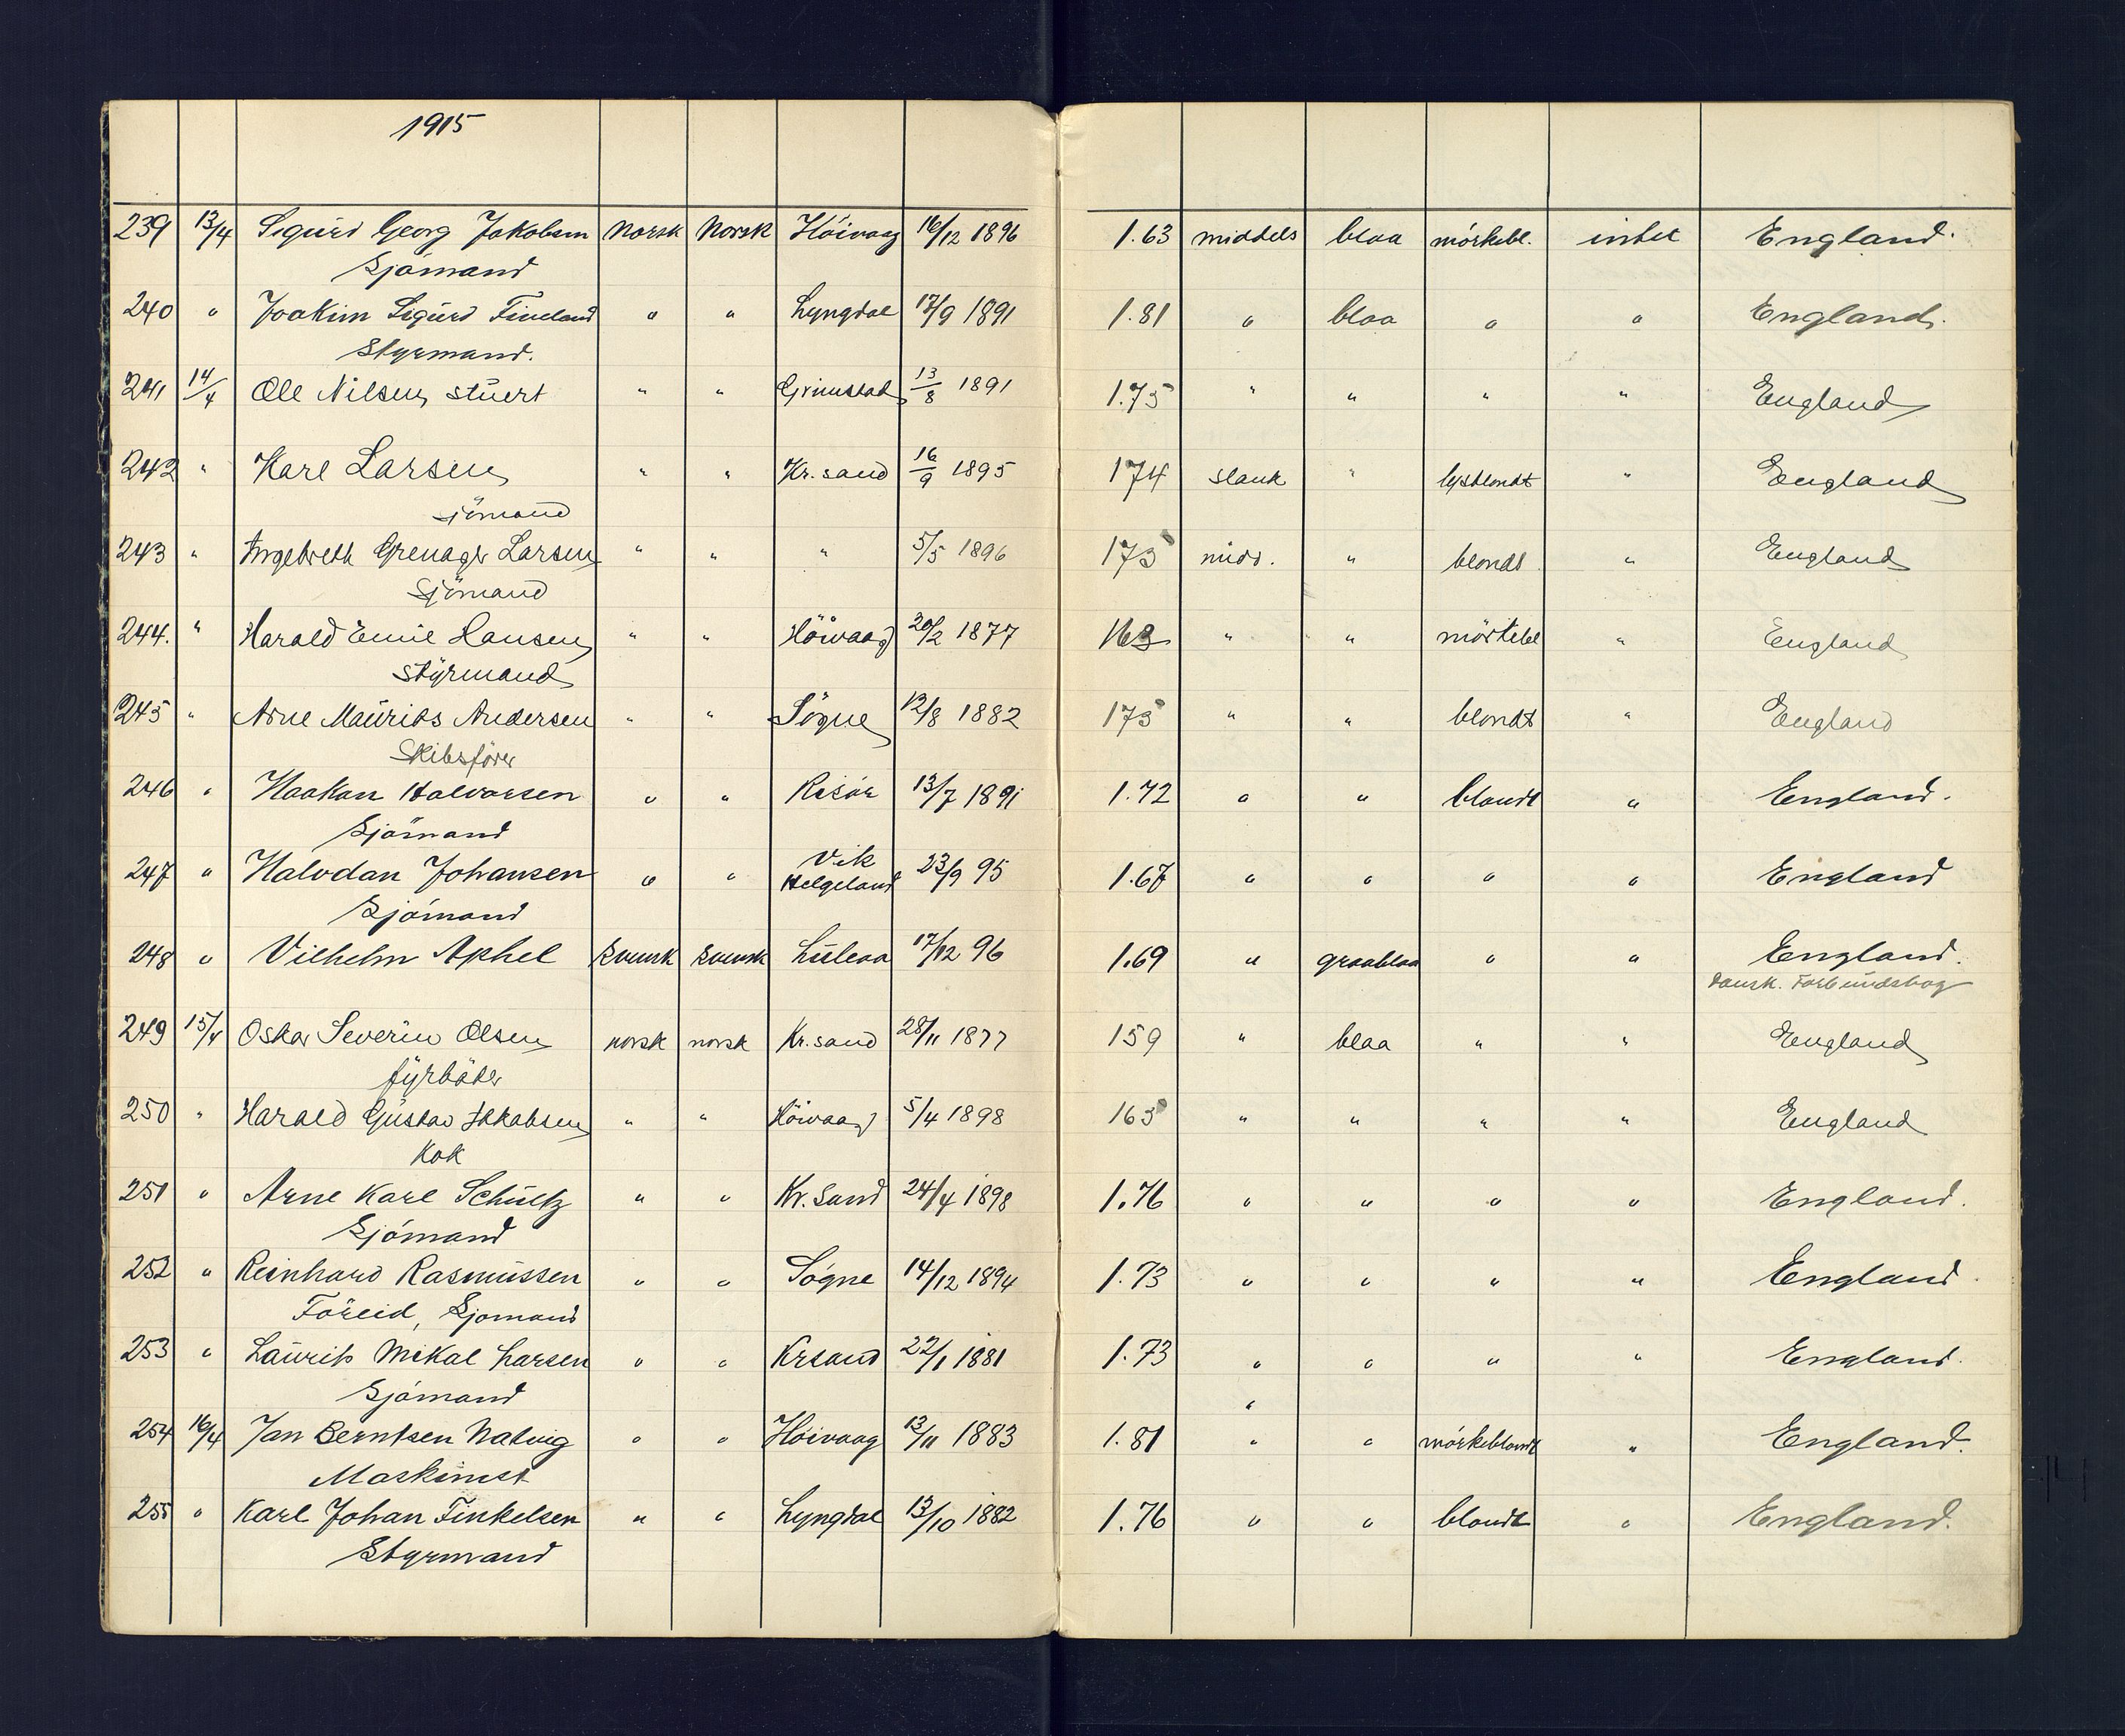 1915
239 13/4 Sigurd Georg Jakobsen Norsk Norsk Höivaag 16/12 1896 1.63 middels blaa mörkebl. intet England.
Sjömand
240 " Joakim Sigurd Fineland " " Lyngdal 17/9 1891 1.81 " blaa " " England.
Styrmand.
241 14/4 Ole Nilsen, stuert " " Grimstad 13/8 1891 1.75 " " " " England
242 " Karl Larsen " " Kr.sand 16/9 1895 174 slank " lysblondt " England
sjömand
243 " Ingebreth Grenager Larsen " " " 5/5 1896 173 midd. " blondt " England
Sjömand
244. " Harald Emil Hansen " " Höivaag 20/2 1877 163 " " mörkebl " England
Styrmand
245 " Arne Maurits Andersen " " Sögne 12/8 1882 175 " " blondt " England
Skibsförer
246 " Haakon Halvorsen " " Risör 13/7 1891 1.72 " " blondt " England.
Sjömand
247 " Halvdan Johansen " " Vik Helgeland 23/9 95 1.67 " " " " England
Sjömand
248 " Vilhelm Aphel Svensk Svensk Luleaa 17/12 96 1.69 " graablaa " " England.
dansk. Forbundsbog
249 15/4 Oskar Severin Olsen norsk norsk Kr.sand 28/11 1877 159 " blaa " " England
fyrböter
250 " Harald Gustav Jakobsen " " Höivaag 5/4 1898 163 " " " " England
Kok
251 " Arne Karl Schultz " " Kr.Sand 24/4 1898 1.76 " " " " England.
Sjömand
252 " Reinhard Rasmussen " " Sögne 14/12 1894 1.73 " " " " England.
Töreid, Sjömand
253 " Laurits Mikal Larsen " " Krsand 22/1 1881 1.73 " " " " England.
Sjömand "
254 16/4 Jan Berntsen Natvig " " Höivaag 13/11 1883 1.81 " " mörkeblondt " England.
Maskinist
255 " Karl Johan Tinkelsen " " Lyngdal 13/10 1882 1.76 " " blondt " England.
Styrmand